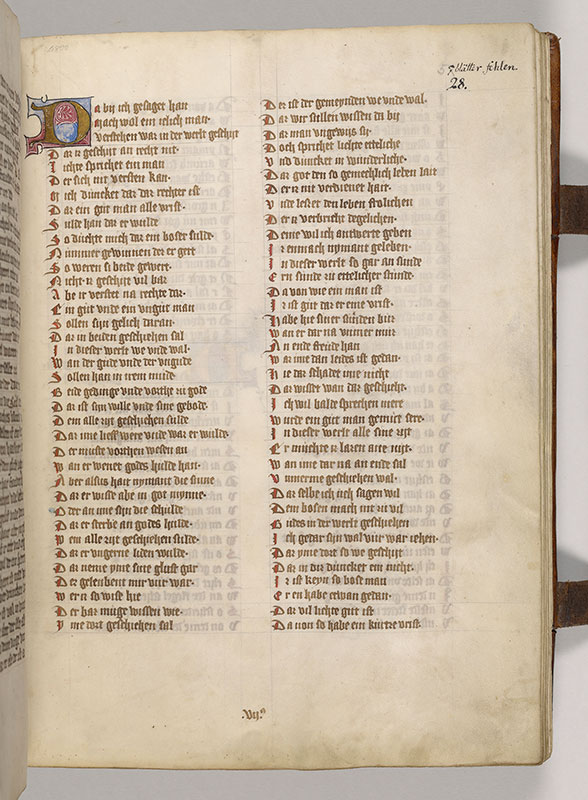 5 blätter fehlen.
28.
Da bij ich gesaget han
nach wol ein ielich man
verstehen waz in der werlt geschijt
Daz n geschijt an recht nit
Ichte sprichet ein man
Der sich nit versten kan
Mich duncket daz daz rechter ist
Daz ein gut man alle vrist
Sulde han daz er wulde
So duchte mich daz ein boser sulde
Nummer gewinnen des er gert
So weren si beide gewert
Nicht n geschijt vil baz
Abe ir verstet na rechte daz
Ein gut vnde ein vngut man
Sollen sijn gelich daran
Daz in beiden geschehen sal
In dieser werlt we vnde wal
Wan der gude vnde der vngude
Sollen han in irem mude
Beide gedinge vnde vorchte zu gode
Daz ist sijn wille vnde sine gebode
Dem alle zijt geschehen sulde
Daz ime lieff were vnde waz er wulde
Der muste vorchten wesen an
Wan er wenet godes hulde han
Aber alsus han nymant die sinne
Daz er wiste abe in got mynne
Der an ime sijn die schulde
Daz er sterbe an godes hulde
Wem alle zijt geschehen sulde
Daz er vngerne liden wulde
Daz neme pine sine glust gar
Des geleubent mir vur war
Wer n so wist hie
Der haz muge wissen wie
Ime dort geschehen sal
Der ist der gemeynden we vnde wal
Daz wir sullen wissen da bij
Daz man vngewis sij
Doch sprichet lichte etteliche
Vnd duncket in wunderliche
Daz got den so gemechlich leben lait
Der n nit verdienet hait
Vnde leßet den leben frolichen
Der n verbricht degelichen
Deme wil ich antwerte geben
Ir ennach nymant geleben
In dieser werlt so gar an sunde
Ern sunde zu ettelicher stunde
Da von wie ein man ist
Ir ist gut daz er eine vrist
Habe hie siner sunden buz
Wan er dar na ummer muz
An ende freude han
Waz ime dan leides ist gedan
Hie daz schadet ime nicht
Daz wisset waz dar geschicht
Ich wil balde sprechen mere
Wirde ein gut man gemuet sere
In dieser werlt alle sine zijt
Er muchte n lazen ane nijt
Wan ime dar na an ende sal
Ummerme geschehen wal
Daz selbe ich uch sagen wil
Dem bosen mach nit zu vil
Gudes in der werlt geschehen
Ich gedar sijn wal vur war iehen
Daz pine dort so we geschijt
Daz in dir duncket ein nicht
Ir ist keyn so bose man
Er en habe etwan gedan
Daz vil lichte gut ist
Da von so habe ein kurtze vrist
.vij.